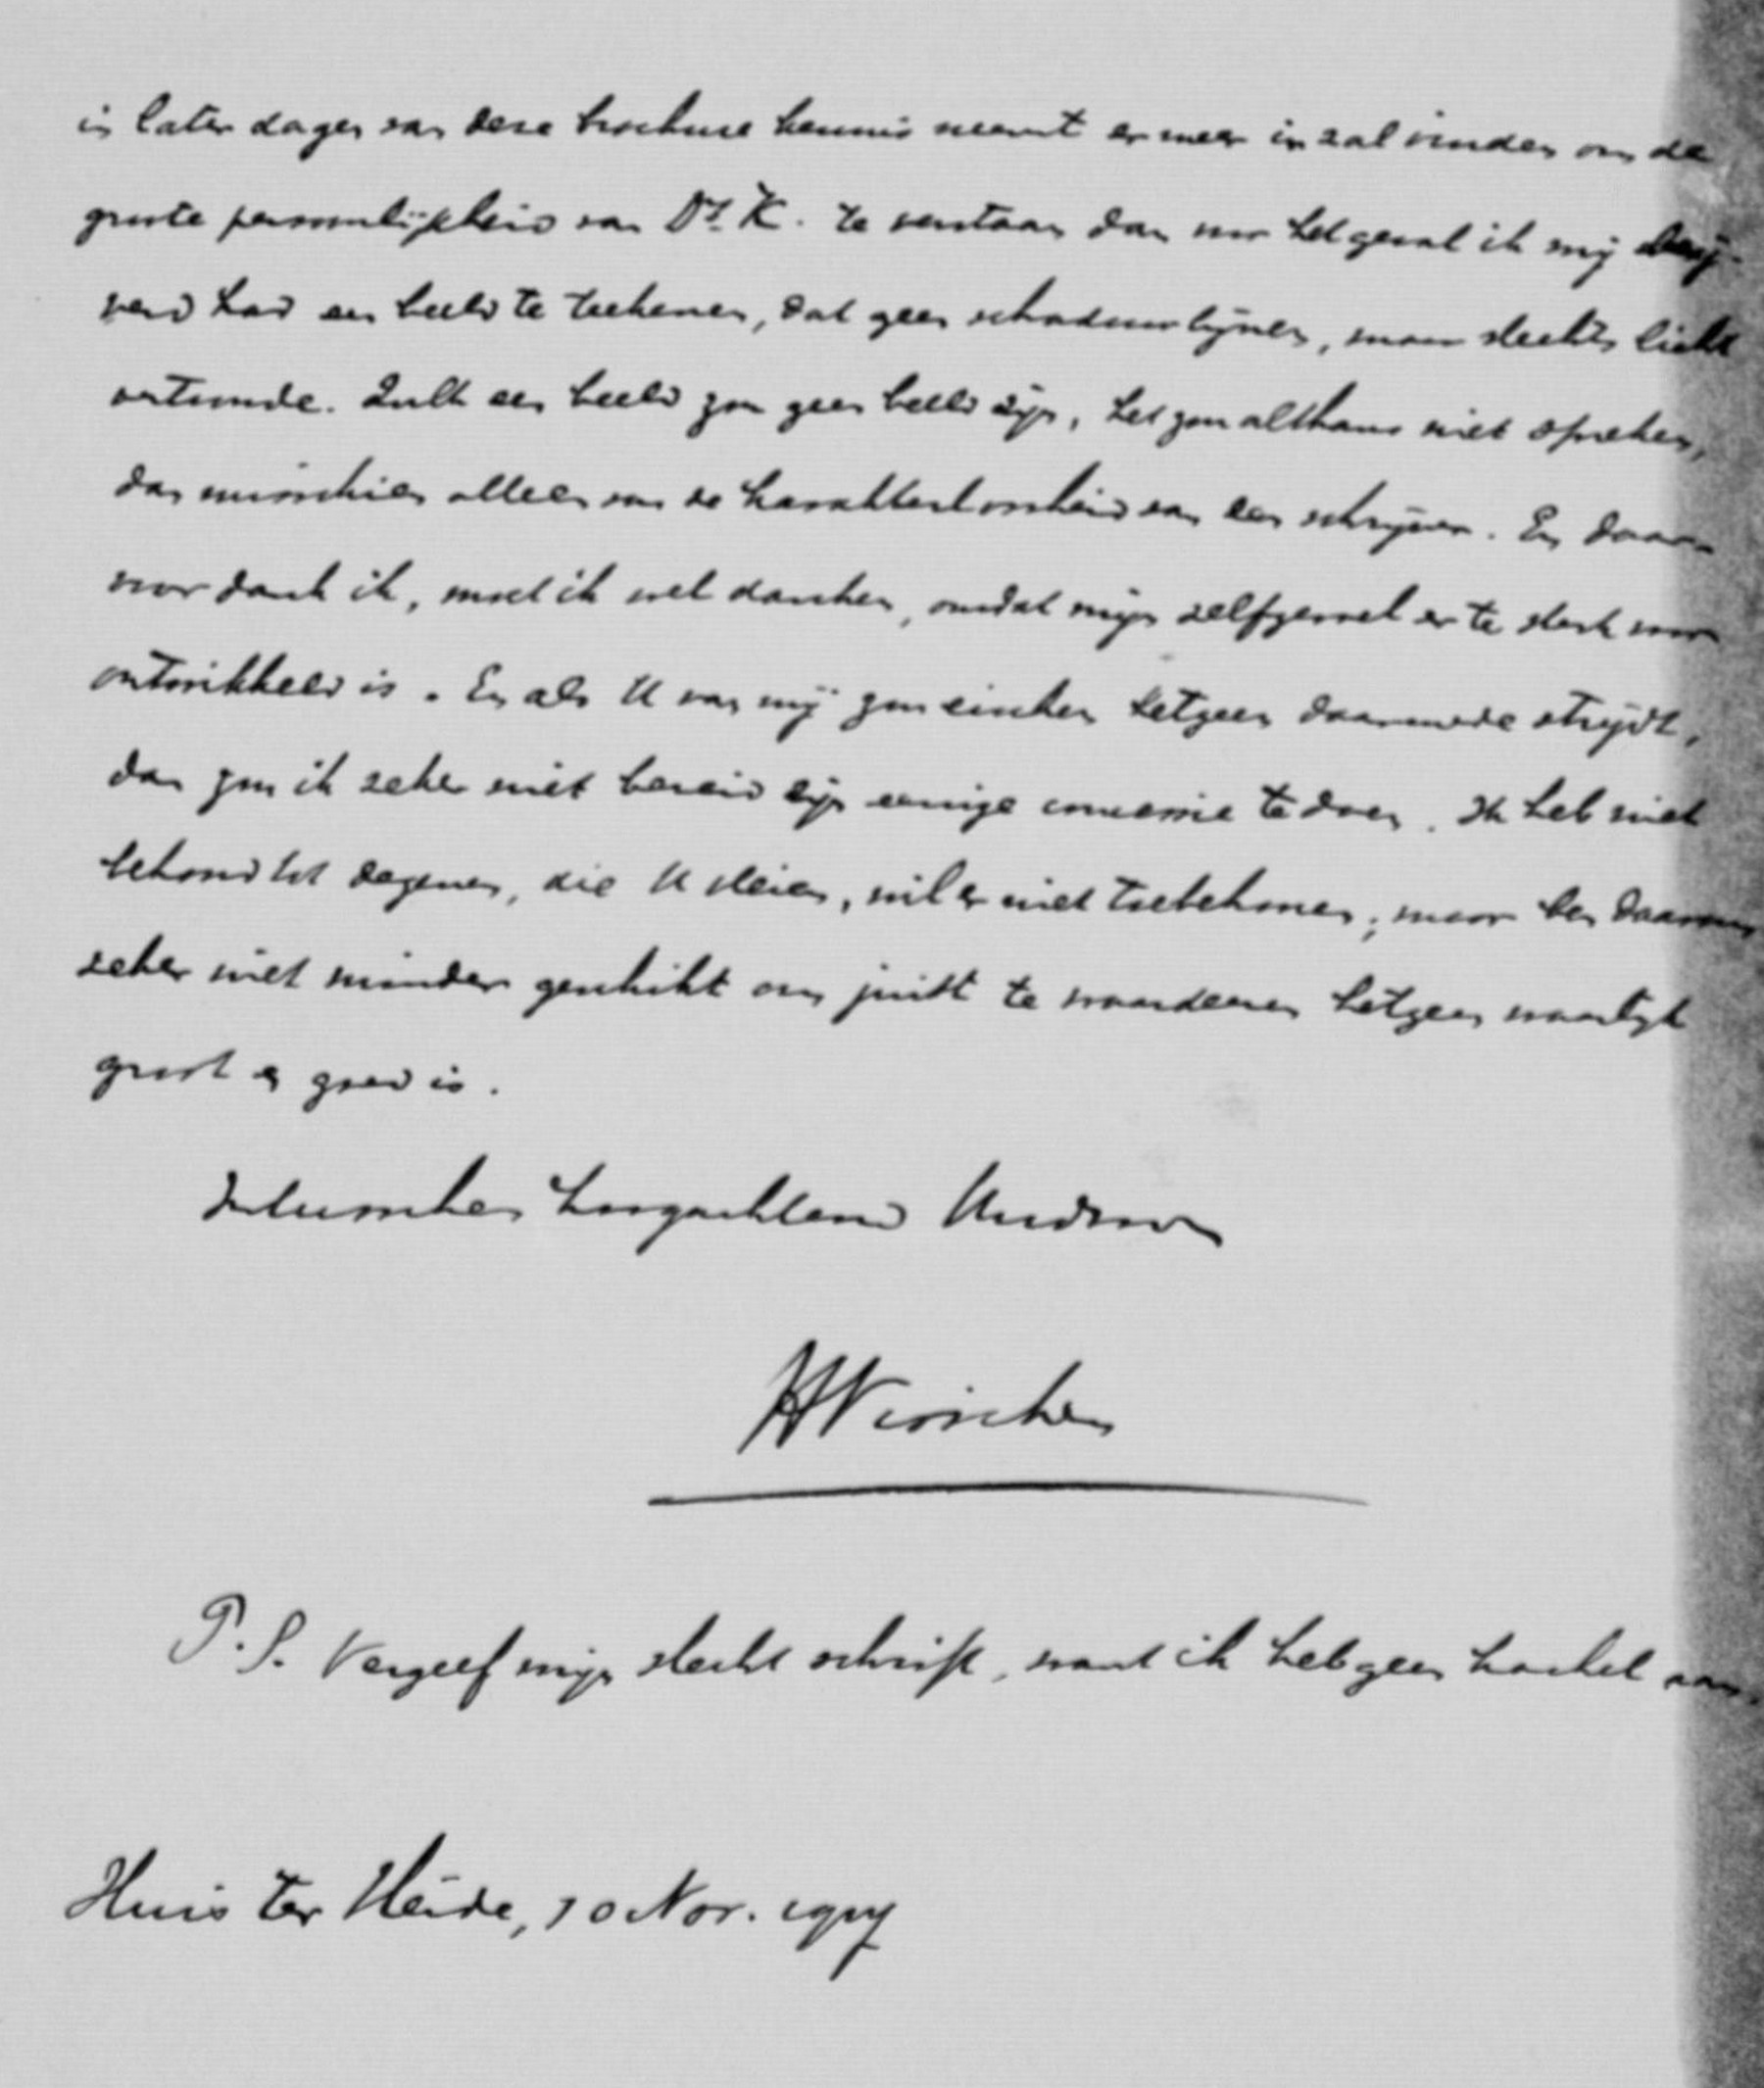 in later dagen van deze brochure kennis neemt er meer in zal vinden om de
groote persoonlijkheid van Dr. K. te verstaan dan voor het geval ik mij beij-
verd had een beeld te teekenen, dat geen schaduwlijnen, maar slechts licht
vertoonde. Zulk een beeld zou geen beeld zijn, het zou althans niet spreken,
dan misschien alleen van de karakterloosheid van den schrijver. En daar-
voor dank ik, moet ik wel danken, omdat mijn zelfgevoel er te sterk voor
ontwikkeld is. En als U van mij zou eischen hetgeen daarmede strijdt,
dan zou ik zeker niet bereid zijn eenige concessie te doen. Ik heb niet
behoord tot degenen, die U vleien, wil er niet toebehooren; maar ben daarom
zeker niet minder geschikt om juist te waardeeren hetgeen waarlijk
groot en goed is.
Inmiddels hoogachtend
HHVisscher
P.S. Vergeef mijn slecht schrift, want ik heb geen
Huis ter Heide, 10 Nov.